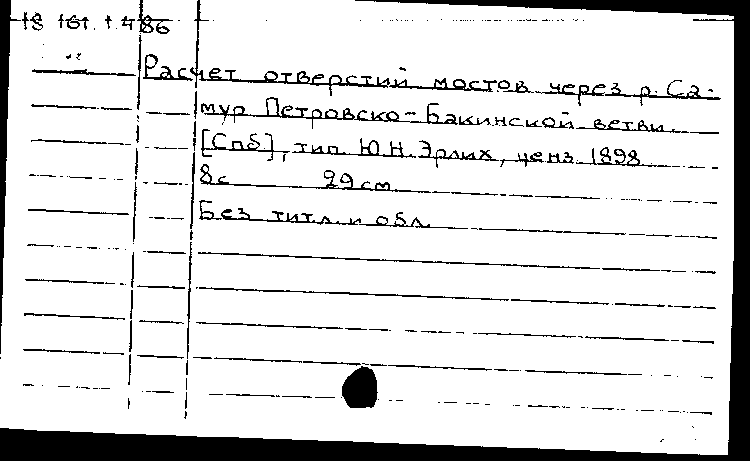 18 161.1.486
Расчет отверстий мостов через р. Са-
мур Петровско-Бакинской ветви.
[Спб], тип. Ю.Н. Эрлих, ценз. 1898
8с 29 см.
Без тит. л. и обл.